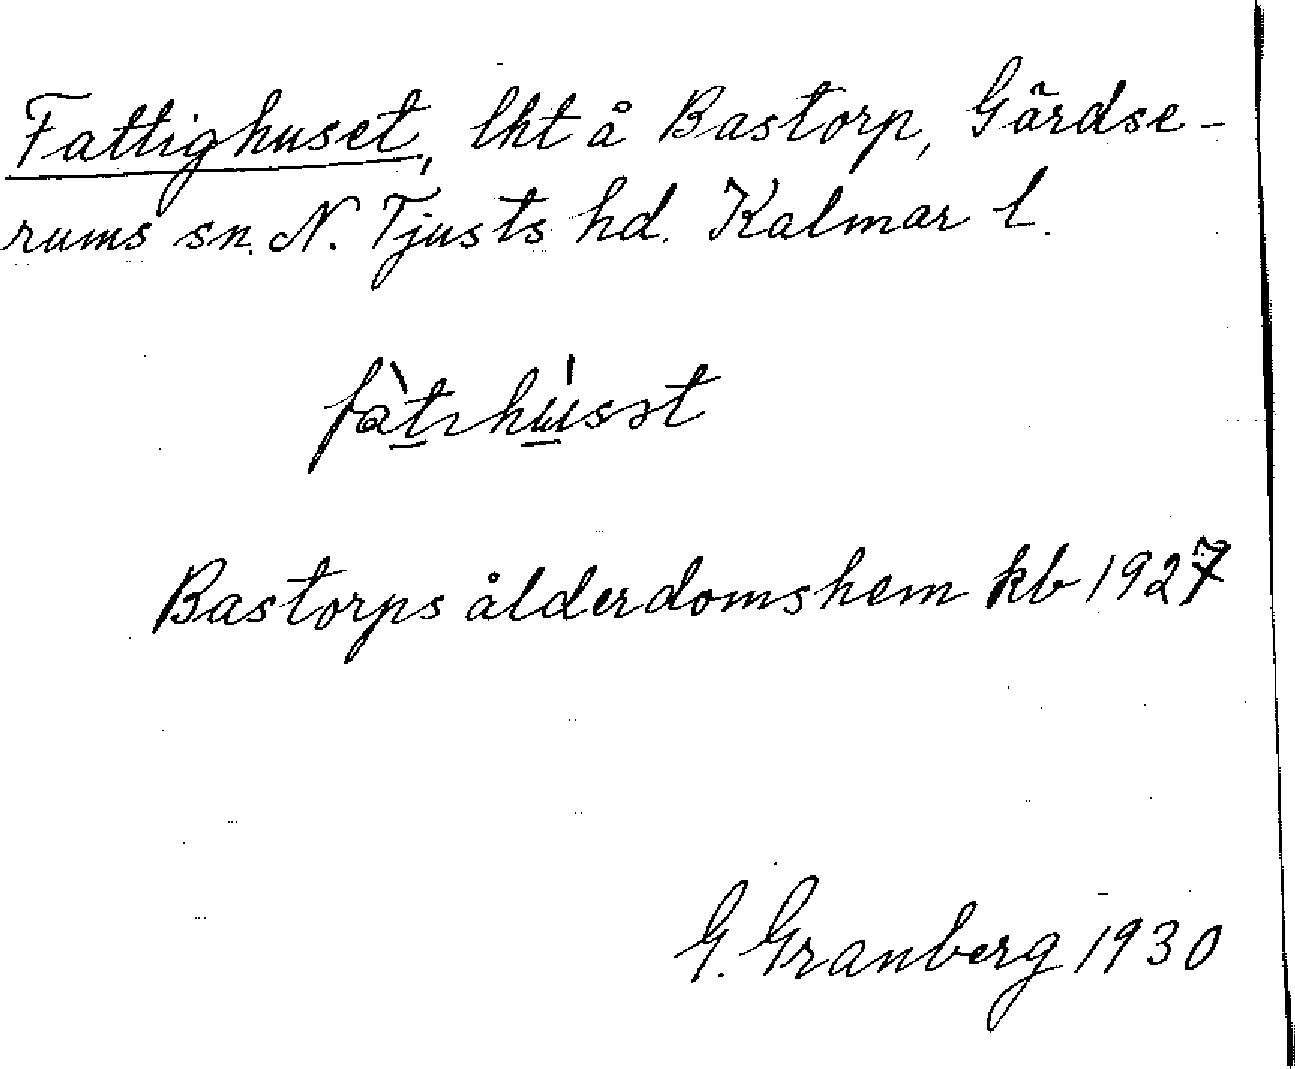 Fattighuset, lht å Bastorp, Gärdse-
rums sn. N. Tjusts hd. Kalmar l.
fàtıhúsət
Bastorps ålderdomshem kb 1927
G. Granberg 1930